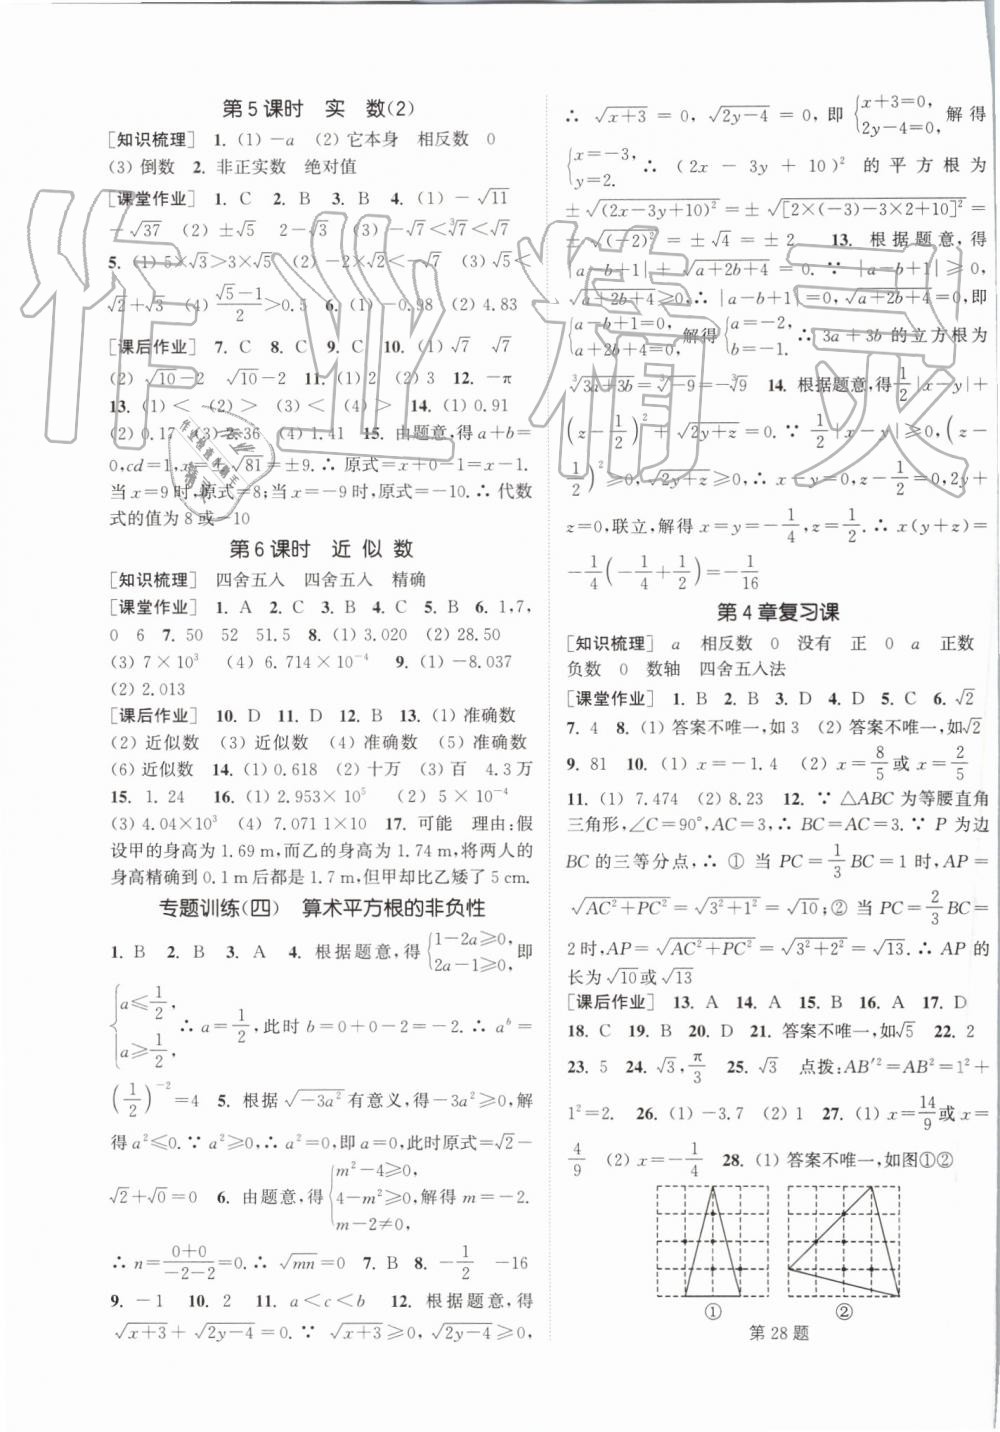 第5课时 实 数(2)
[知识梳理] 1. (1) －a (2) 它本身 相反数 0
(3) 倒数 2. 非正实数 绝对值
[课堂作业] 1. C 2. B 3. B 4. (1) －√11
－√37 (2) ±√5 2－√3 (3) －√7＜∛7＜√7
5. (1) 5×√3＞3×√5 (2) －2×√2＜－√7 (3) √5＜
√2＋√3 (4) (√5－1)/2＞0.5 6. (1) －0.98 (2) 4.83
[课后作业] 7. C 8. C 9. C 10. (1) √7 √7
(2) √10－2 √10－2 11. (1) 2 (2) 3 12. －π
13. (1)＜ (2)＞ (3)＜ (4)＞ 14. (1) 0.91
(2) 0.17 (3) 2.36 (4) 1.41 15. 由题意,得a＋b＝
0,cd＝1,x＝±√81＝±9.∴ 原式＝x＋0－1＝x－1.
当x＝9时,原式＝8;当x＝－9时,原式＝－10.∴ 代数
式的值为8或－10
第6课时 近 似 数
[知识梳理] 四舍五入 四舍五入 精确
[课堂作业] 1. A 2. C 3. B 4. C 5. B 6. 1,7,
0 6 7. 50 52 51.5 8. (1) 3.020 (2) 28.50
(3) 7×10³ (4) 6.714×10⁻⁴ 9. (1) －8.037
(2) 2.013
[课后作业] 10. D 11. D 12. B 13. (1) 准确数
(2) 近似数 (3) 近似数 (4) 准确数 (5) 准确数
(6) 近似数 14. (1) 0.618 (2) 十万 (3) 百 4.3万
15. 1. 24 16. (1) 2.953×10⁵ (2) 5×10⁻⁴
(3) 4.04×10³ (4) 7.071 1×10 17. 可能 理由:假
设甲的身高为1.69 m,而乙的身高为1.74 m,将两人的
身高精确到0.1 m后都是1.7 m,但甲却比乙矮了5 cm.
专题训练(四) 算术平方根的非负性
1. B 2. B 3. A 4. 根据题意,得{1－2a≥0, 2a－1≥0, 即
{a≤1/2, a≥1/2, ∴ a＝1/2,此时b＝0＋0－2＝－2.∴ aᵇ＝
(1/2)⁻²＝4 5. 根据√(－3a²)有意义,得－3a²≥0,解
得a²≤0.∵ a²≥0,∴ a²＝0,即a＝0,此时原式＝√2－
√2＋√0＝0 6. 由题意,得{m²－4≥0, 4－m²≥0, m－2≠0, 解得m＝－2.
∴ n＝(0＋0)/(－2－2)＝0.∴ √(mn)＝0 7. B 8. －1/2 －16
9. －1 10. 2 11. a＜c＜b 12. 根据题意,得
√(x＋3)＋√(2y－4)＝0.∵ √(x＋3)≥0,√(2y－4)≥0,
∴ √(x＋3)＝0,√(2y－4)＝0,即{x＋3＝0, 2y－4＝0, 解得
{x＝－3, y＝2. ∴ (2x－3y＋10)²的平方根为
±√((2x－3y＋10)²)＝±√([2×(－3)－3×2＋10]²)＝
±√((－2)²)＝±√4＝±2 13. 根据题意,得
|a－b＋1|＋√(a＋2b＋4)＝0.∵ |a－b＋1|≥0,
√(a＋2b＋4)≥0,∴ |a－b＋1|＝0,√(a＋2b＋4)＝0,即
{a－b＋1＝0, a＋2b＋4＝0, 解得{a＝－2, b＝－1. ∴ 3a＋3b的立方根为
∛(3a＋3b)＝∛(－9)＝－∛9 14. 根据题意,得1/2|x－y|＋
(z－1/2)²＋√(2y＋z)＝0.∵ 1/2|x－y|≥0,(z－
1/2)²≥0,√(2y＋z)≥0,∴ x－y＝0,z－1/2＝0,2y＋
z＝0,联立,解得x＝y＝－1/4,z＝1/2.∴ x(y＋z)＝
－1/4(－1/4＋1/2)＝－1/16
第4章复习课
[知识梳理] a 相反数 0 没有 正 0 a 正数
负数 0 数轴 四舍五入法
[课堂作业] 1. B 2. B 3. D 4. D 5. C 6. √2
7. 4 8. (1) 答案不唯一,如3 (2) 答案不唯一,如√2
9. 81 10. (1) x＝－1.4 (2) x＝8/5或x＝2/5
11. (1) 7.474 (2) 8.23 12. ∵ △ABC为等腰直角
三角形,∠C＝90°,AC＝3,∴ BC＝AC＝3.∵ P为边
BC的三等分点,∴ ① 当PC＝1/3BC＝1时,AP＝
√(AC²＋PC²)＝√(3²＋1²)＝√10;② 当PC＝2/3BC＝
2时,AP＝√(AC²＋PC²)＝√(3²＋2²)＝√13.∴ AP的
长为√10或√13
[课后作业] 13. A 14. A 15. B 16. A 17. D
18. C 19. B 20. D 21. 答案不唯一,如√5 22. 2
23. 5 24. √3,π/3 25. √3 点拨:AB′²＝AB²＝1²＋
1²＝2. 26. (1) －3.7 (2) 1 27. (1) x＝14/9或x＝
4/9 (2) x＝－1/4 28. (1) 答案不唯一,如图①②
① ②
第28题
作业精灵